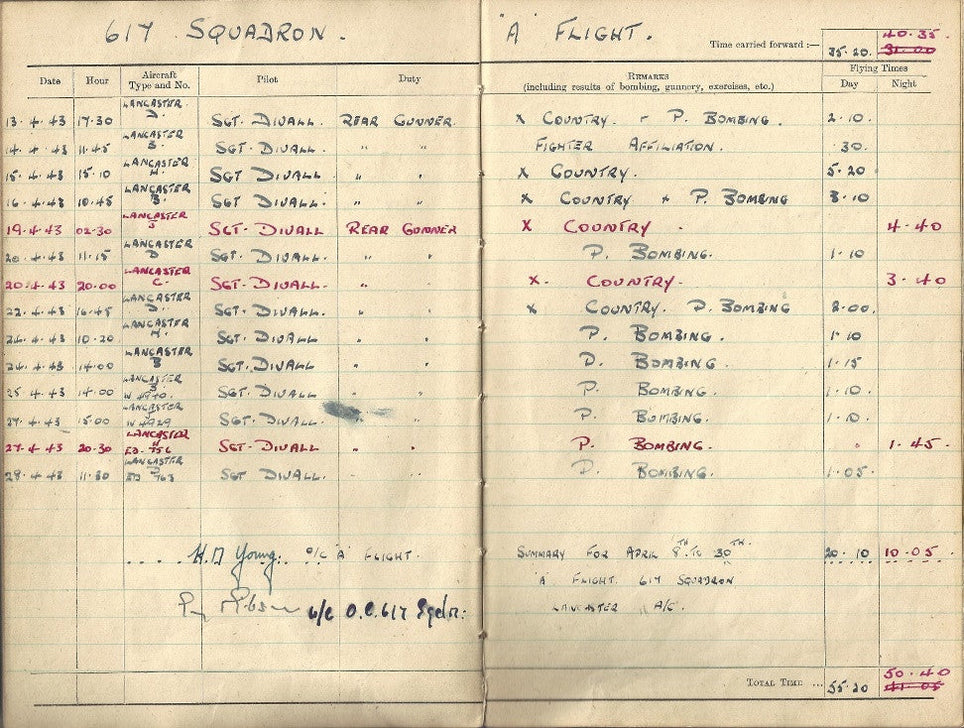 617 SQUADRON. 'A' FLIGHT.
Time carried forward :— 35.20. 40.35. 31.00
Date Hour Aircraft Type and No. Pilot Duty REMARKS (including results of bombing, gunnery, exercises, etc.) Flying Times Day Night
13.4.43 17.30 LANCASTER D. SGT. DIVALL. REAR GUNNER. X COUNTRY. P. BOMBING. 2.10.
14.4.43 11.45 LANCASTER S. SGT. DIVALL. " " FIGHTER AFFILIATION. .30.
15.4.43 15.10 LANCASTER H. SGT DIVALL. " " X COUNTRY. 5.20
16.4.43 10.45 LANCASTER B. SGT DIVALL. " " X COUNTRY + P. BOMBING 3.10
19.4.43 02.30 LANCASTER S SGT. DIVALL REAR GUNNER X COUNTRY. 4.40
20.4.43 11.15 LANCASTER D SGT. DIVALL. " " P. BOMBING. 1.10
20.4.43 20.00 LANCASTER C. SGT. DIVALL. " " X. COUNTRY. 3.40
22.4.43 16.45 LANCASTER D. SGT. DIVALL. " " X COUNTRY. P. BOMBING 2.00.
24.4.43 10.20 LANCASTER H. SGT. DIVALL. " " P. BOMBING. 1.10
24.4.43 14.00 LANCASTER B SGT. DIVALL. " " P. BOMBING. 1.15
25.4.43 14.00 LANCASTER W 4940. SGT. DIVALL. " " P. BOMBING. 1.10.
27.4.43 15.00 LANCASTER W 4929 SGT. DIVALL. " P. BOMBING. 1.10.
27.4.43 20.30 LANCASTER ED. 756 SGT. DIVALL. " " P. BOMBING. 1.45.
28.4.43 11.30 LANCASTER ED 763 SGT DIVALL. " " P. BOMBING. 1.05.
H.M Young. O/C 'A' FLIGHT. SUMMARY FOR APRIL 8TH TO 30TH. 20.10 10.05.
'A' FLIGHT. 617 SQUADRON
W/C O.C. 617 Sqdn: LANCASTER A/C.
TOTAL TIME ... 55.20 50.40 41.05